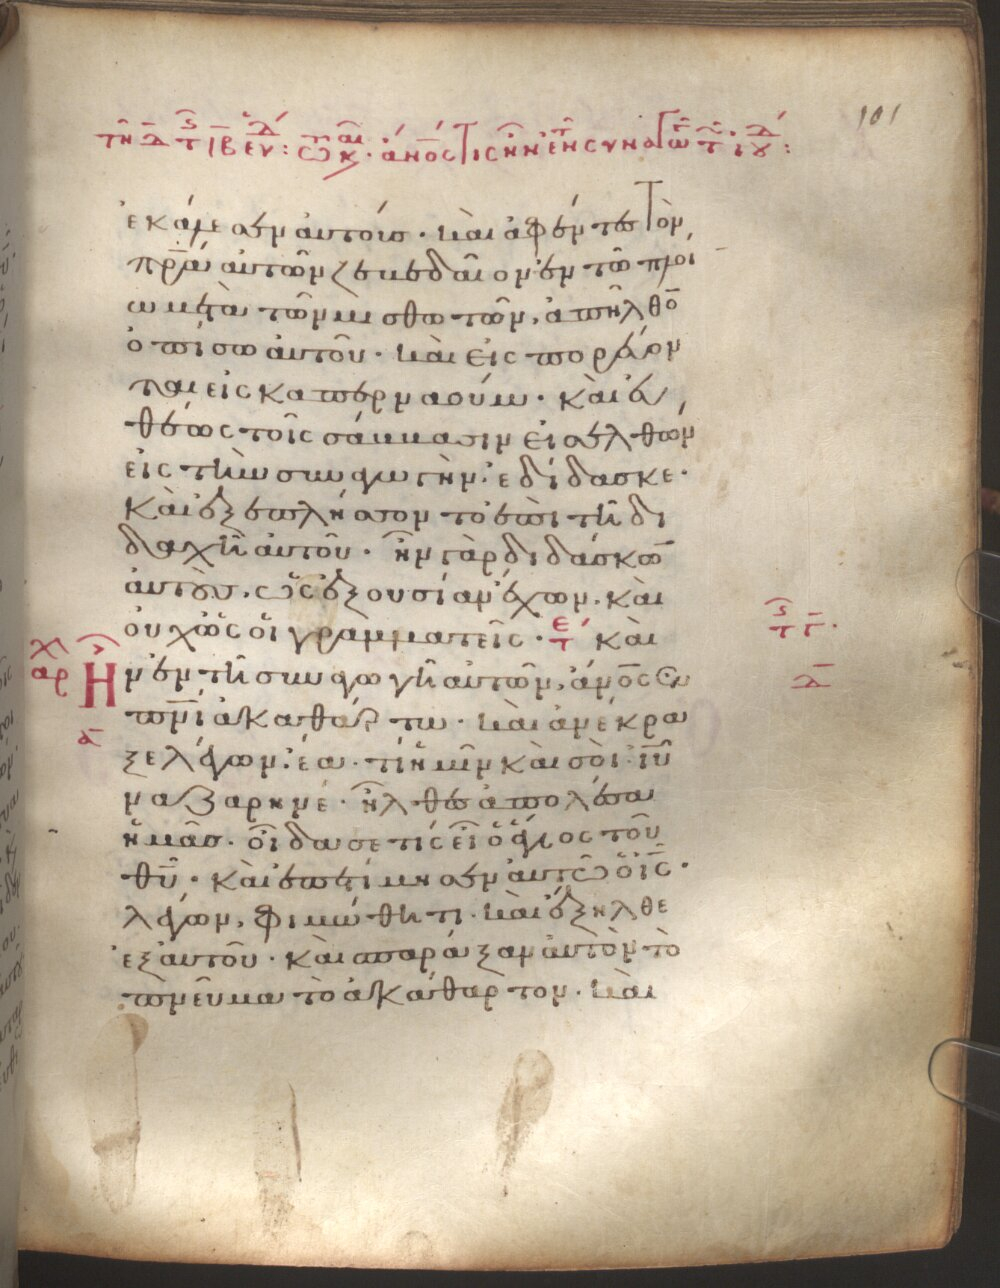 101
ἐκάλεσεν αὐτούς · καὶ ἀφέντες τὸν
πρ̅α αὐτῶν ζεβεδαῖον ἐν τῶ πλοί
ω μετὰ τῶν μισθωτῶν, ἀπῆλθο̅
ὀπίσω αὐτοῦ · καὶ εἰσπορεύον
ται εἰς καπερναούμ · καὶ εὐ
θέως τοῖς σάββασιν εἰσελθὼν
εἰς τὴν συναγωγὴν ἐδίδασκε ·
καὶ ἐξεπλήσσοντο ἐπὶ τῆ δι
δαχῆ αὐτοῦ · ἦν γὰρ διδάσκω̅
αὐτοὺς, ὡς ἐξουσίαν ἔχων. καὶ
οὐχ ὡς οἱ γραμματεῖς · καὶ
Ἦν ἐν τῆ συναγωγῆ αὐτῶν, ἄν̅ο̅ς ἐν
πν̅ι ἀκαθάρτω · καὶ ἀνέκρα
ξε λέγων ἔα · τί ἡμῖν καὶ σοὶ ιυ̅
ναζαρηνέ · ἦλθες ἀπολέσαι
ἡμᾶς · οἶδα σε τίς εἶ ὁ ἅγιος τοῦ
θυ̅ · καὶ ἐπετίμησεν αὐτῶ ὁ ις̅ ·
λέγων, φιμώθητι · καὶ ἔξελθε
ἐξ αὐτοῦ · καὶ σπαράξαν αὐτὸν τὸ
πνεῦμα τὸ ἀκάθαρτον · καὶ